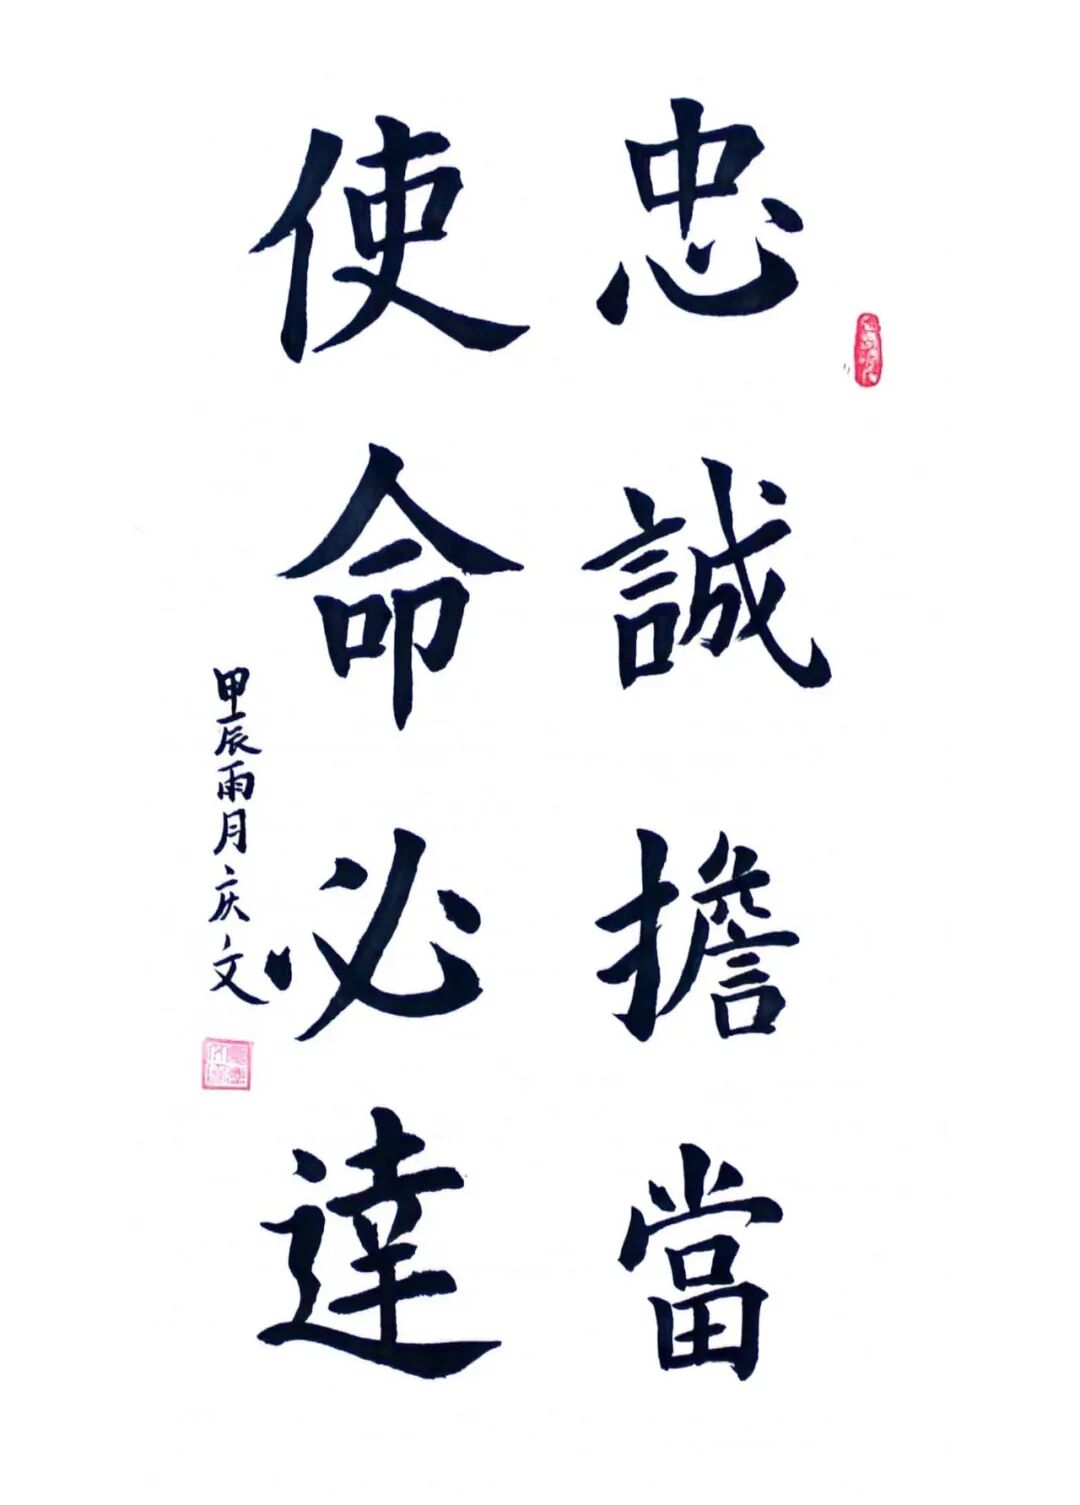 忠誠擔當
使命必達
甲辰雨月庆文